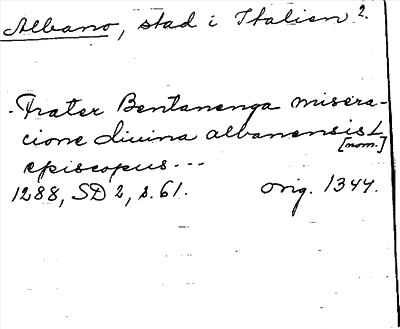 Albano, stad i Italien 2.
- Frater Bentanenga misera-
cione diuina albanensis L
[nom.]
episcopus ---
1288, SD 2, s. 61. orig. 1344.